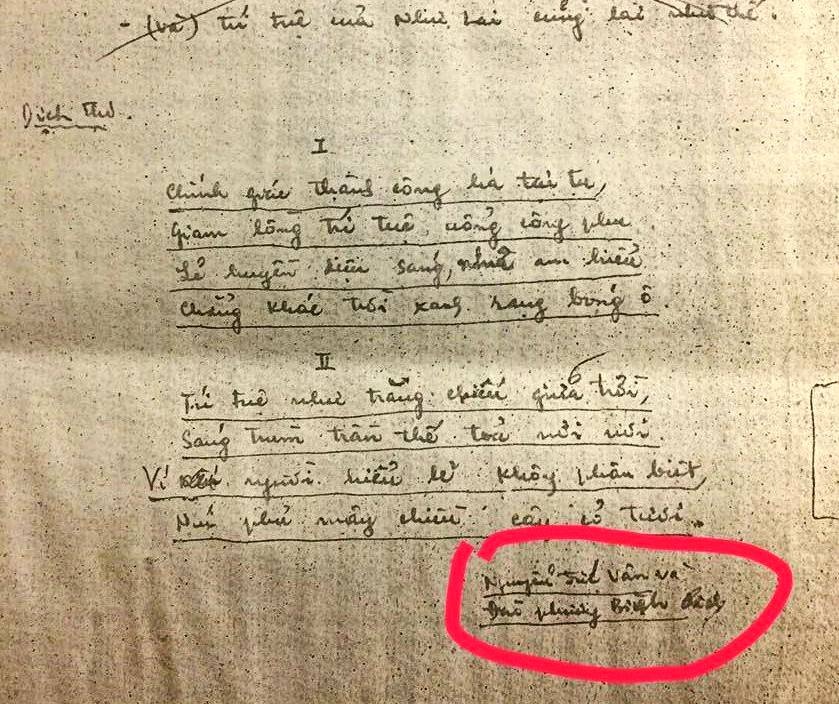 - (Và) trí tuệ của Như Lai cũng lại như thế.
Dịch thơ.
I
Chính giác thành công há tại tu,
Giam lòng trí tuệ uổng công phu
Lẽ huyền diệu sáng, am hiểu
Chẳng khác trời xanh rạng bóng ô.
II
Trí tuệ như trăng chiếu giữa trời,
Sáng trùm trần thế toả nơi nơi.
Ví người hiểu lẽ không phân biệt,
Núi phủ mây chiều cây cỏ tươi.
Nguyễn Đức Vân và
Đào Phương Bình dịch